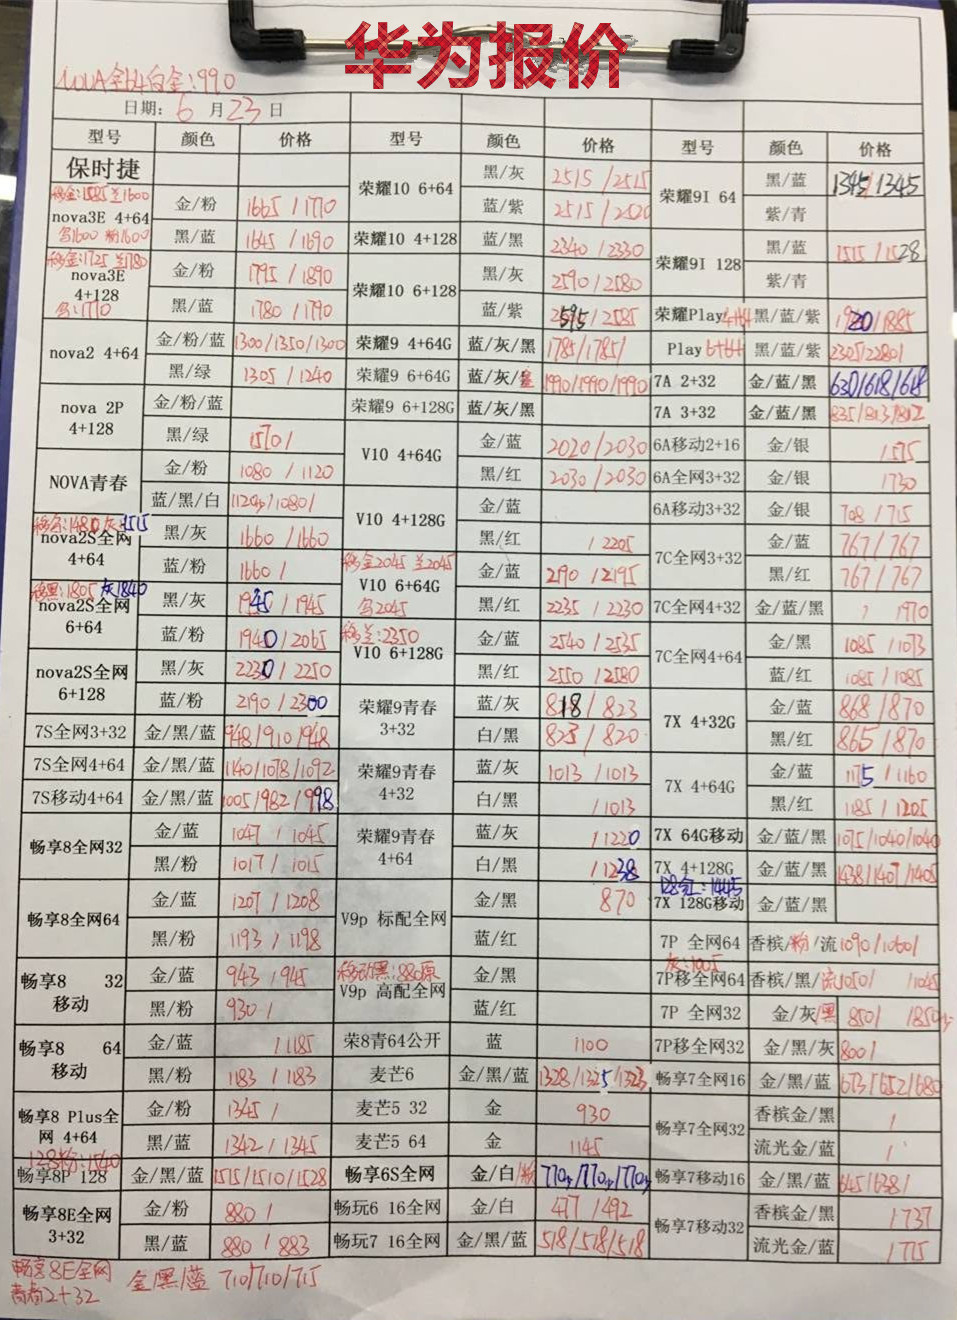 华为报价
NOVA全网4白金:990
日期: 6 月 23 日
型号 颜色 价格 型号 颜色 价格 型号 颜色 价格
保时捷
移金:1585 兰1600
nova3E 4+64
乌1600 粉1600
金/粉 1665/1710
黑/蓝 1645/1690
移金:1725 兰1780
nova3E 4+128
乌:1710
金/粉 1795/1890
黑/蓝 1780/1790
nova2 4+64 金/粉/蓝 1300/1350/1300
黑/绿 1305/1240
nova 2P 4+128 金/粉/蓝
黑/绿 1570/
NOVA青春 金/粉 1080/1120
蓝/黑/白 1120/1080/
nova2S全网 4+64 黑/灰 1660/1660
蓝/粉 1660/
移黑:1805 灰1840
nova2S全网 6+64 黑/灰 1945/1945
蓝/粉 1940/2065
nova2S全网 6+128 黑/灰 2230/2250
蓝/粉 2190/2300
7S全网3+32 金/黑/蓝 948/910/948
7S全网4+64 金/黑/蓝 1140/1078/1092
7S移动4+64 金/黑/蓝 1005/982/998
畅享8全网32 金/蓝 1047/1045
黑/粉 1017/1015
畅享8全网64 金/蓝 1207/1208
黑/粉 1193/1198
畅享8 32 移动 金/蓝 943/945
黑/粉 930/
畅享8 64 移动 金/蓝 /1185
黑/粉 1183/1183
畅享8 Plus全网 4+64 金/粉 1345/
黑/蓝 1342/1345
128粉:1540
畅享8P 128 金/黑/蓝 1515/1510/1528
畅享8E全网 3+32 金/粉 880/
黑/蓝 880/883
畅享8E全网
青春2+32 金/黑/蓝 710/710/715
荣耀10 6+64 黑/灰 2515/2515
蓝/紫 2515/2520
荣耀10 4+128 蓝/黑 2340/2330
荣耀10 6+128 黑/灰 2590/2580
蓝/紫 2595/2585
荣耀9 4+64G 蓝/灰/黑 1785/1785/
荣耀9 6+64G 蓝/灰/金 1990/1990/1990
荣耀9 6+128G 蓝/灰/黑
V10 4+64G 金/蓝 2020/2030
黑/红 2030/2030
V10 4+128G 金/蓝
黑/红 /2205
移金2045 兰2045
V10 6+64G
乌2045
金/蓝 2190/2195
黑/红 2235/2230
移兰:2350
V10 6+128G 金/蓝 2540/2535
黑/红 2550/2580
荣耀9青春 3+32 蓝/灰 818/823
白/黑 823/820
荣耀9青春 4+32 蓝/灰 1013/1013
白/黑 /1013
荣耀9青春 4+64 蓝/灰 /1220
白/黑 /1238
V9p 标配全网 金/黑 870
蓝/红
移动黑:880原
V9p 高配全网 金/黑
蓝/红
荣8青64公开 蓝 1100
麦芒6 金/黑/蓝 1328/1325/1323
麦芒5 32 金 930
麦芒5 64 金 1145
畅享6S全网 金/白/粉 770/770/770
畅玩6 16全网 金/白 477/492
畅玩7 16全网 金/黑/蓝 518/518/518
荣耀9I 64 黑/蓝 1345/1345
紫/青
荣耀9I 128 黑/蓝 1515/1528
紫/青
荣耀Play 4+64 黑/蓝/紫 1920/1885
Play 6+64 黑/蓝/紫 2305/2280/
7A 2+32 金/蓝/黑 630/618/618
7A 3+32 金/蓝/黑 835/813/812
6A移动2+16 金/银 /575
6A全网3+32 金/银 /730
6A移动3+32 金/银 708/715
7C全网3+32 金/蓝 767/767
黑/红 767/767
7C全网4+32 金/蓝/黑 / /970
7C全网4+64 金/黑 1085/1073
蓝/红 1085/1085
7X 4+32G 金/蓝 868/870
黑/红 865/870
7X 4+64G 金/蓝 1175/1160
黑/红 1185/1205
7X 64G移动 金/蓝/黑 1075/1040/1040
7X 4+128G 金/蓝/黑 1438/1407/1405
128红:1445
7X 128G移动 金/蓝/黑
7P 全网64 香槟/粉/流 1090/1060/
灰:1005
7P移全网64 香槟/黑/流 1050/ /1045
7P 全网32 金/灰/黑 850/ /850
7P移全网32 金/黑/灰 800/
畅享7全网16 金/黑/蓝 673/652/680
畅享7全网32 香槟金/黑 /
流光金/蓝 /
畅享7移动16 金/黑/蓝 645/638/
畅享7移动32 香槟金/黑 /737
流光金/蓝 /715